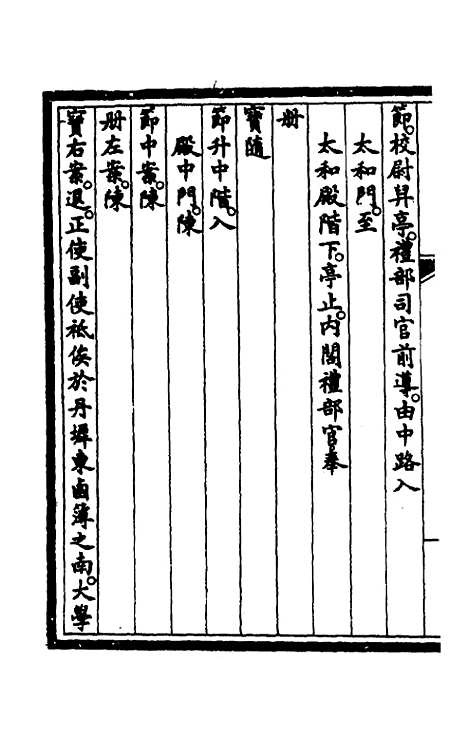 節。校尉舁亭。禮部司官前導。由中路入
太和門。至
太和殿階下。亭止。內閣禮部官奉
册
寶隨
節升中階。入
殿中門。陳
節中案。陳
册左案。陳
寶右案。退。正使副使祗俟於丹墀東鹵簿之南。大學